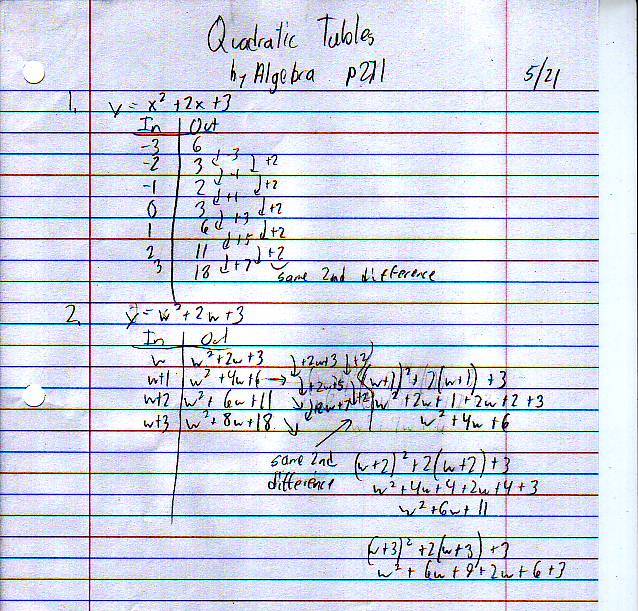 Quadratic Tables
by Algebra p271
5/21
1. y = x² + 2x + 3
In | Out
-3 | 6
-2 | 3 -3
-1 | 2 -1 +2
0 | 3 +1 +2
1 | 6 +3 +2
2 | 11 +5 +2
3 | 18 +7 +2
same 2nd difference
2. y = w² + 2w + 3
In | Out
w | w² + 2w + 3 +2w+3 +2
w+1 | w² + 4w + 6 → +2w+5 (w+1)² + 2(w+1) + 3
w+2 | w² + 6w + 11 +2w+7 +2 w² + 2w + 1 + 2w + 2 + 3
w+3 | w² + 8w + 18 w² + 4w + 6
same 2nd
difference
(w+2)² + 2(w+2) + 3
w² + 4w + 4 + 2w + 4 + 3
w² + 6w + 11
(w+3)² + 2(w+3) + 3
w² + 6w + 9 + 2w + 6 + 3